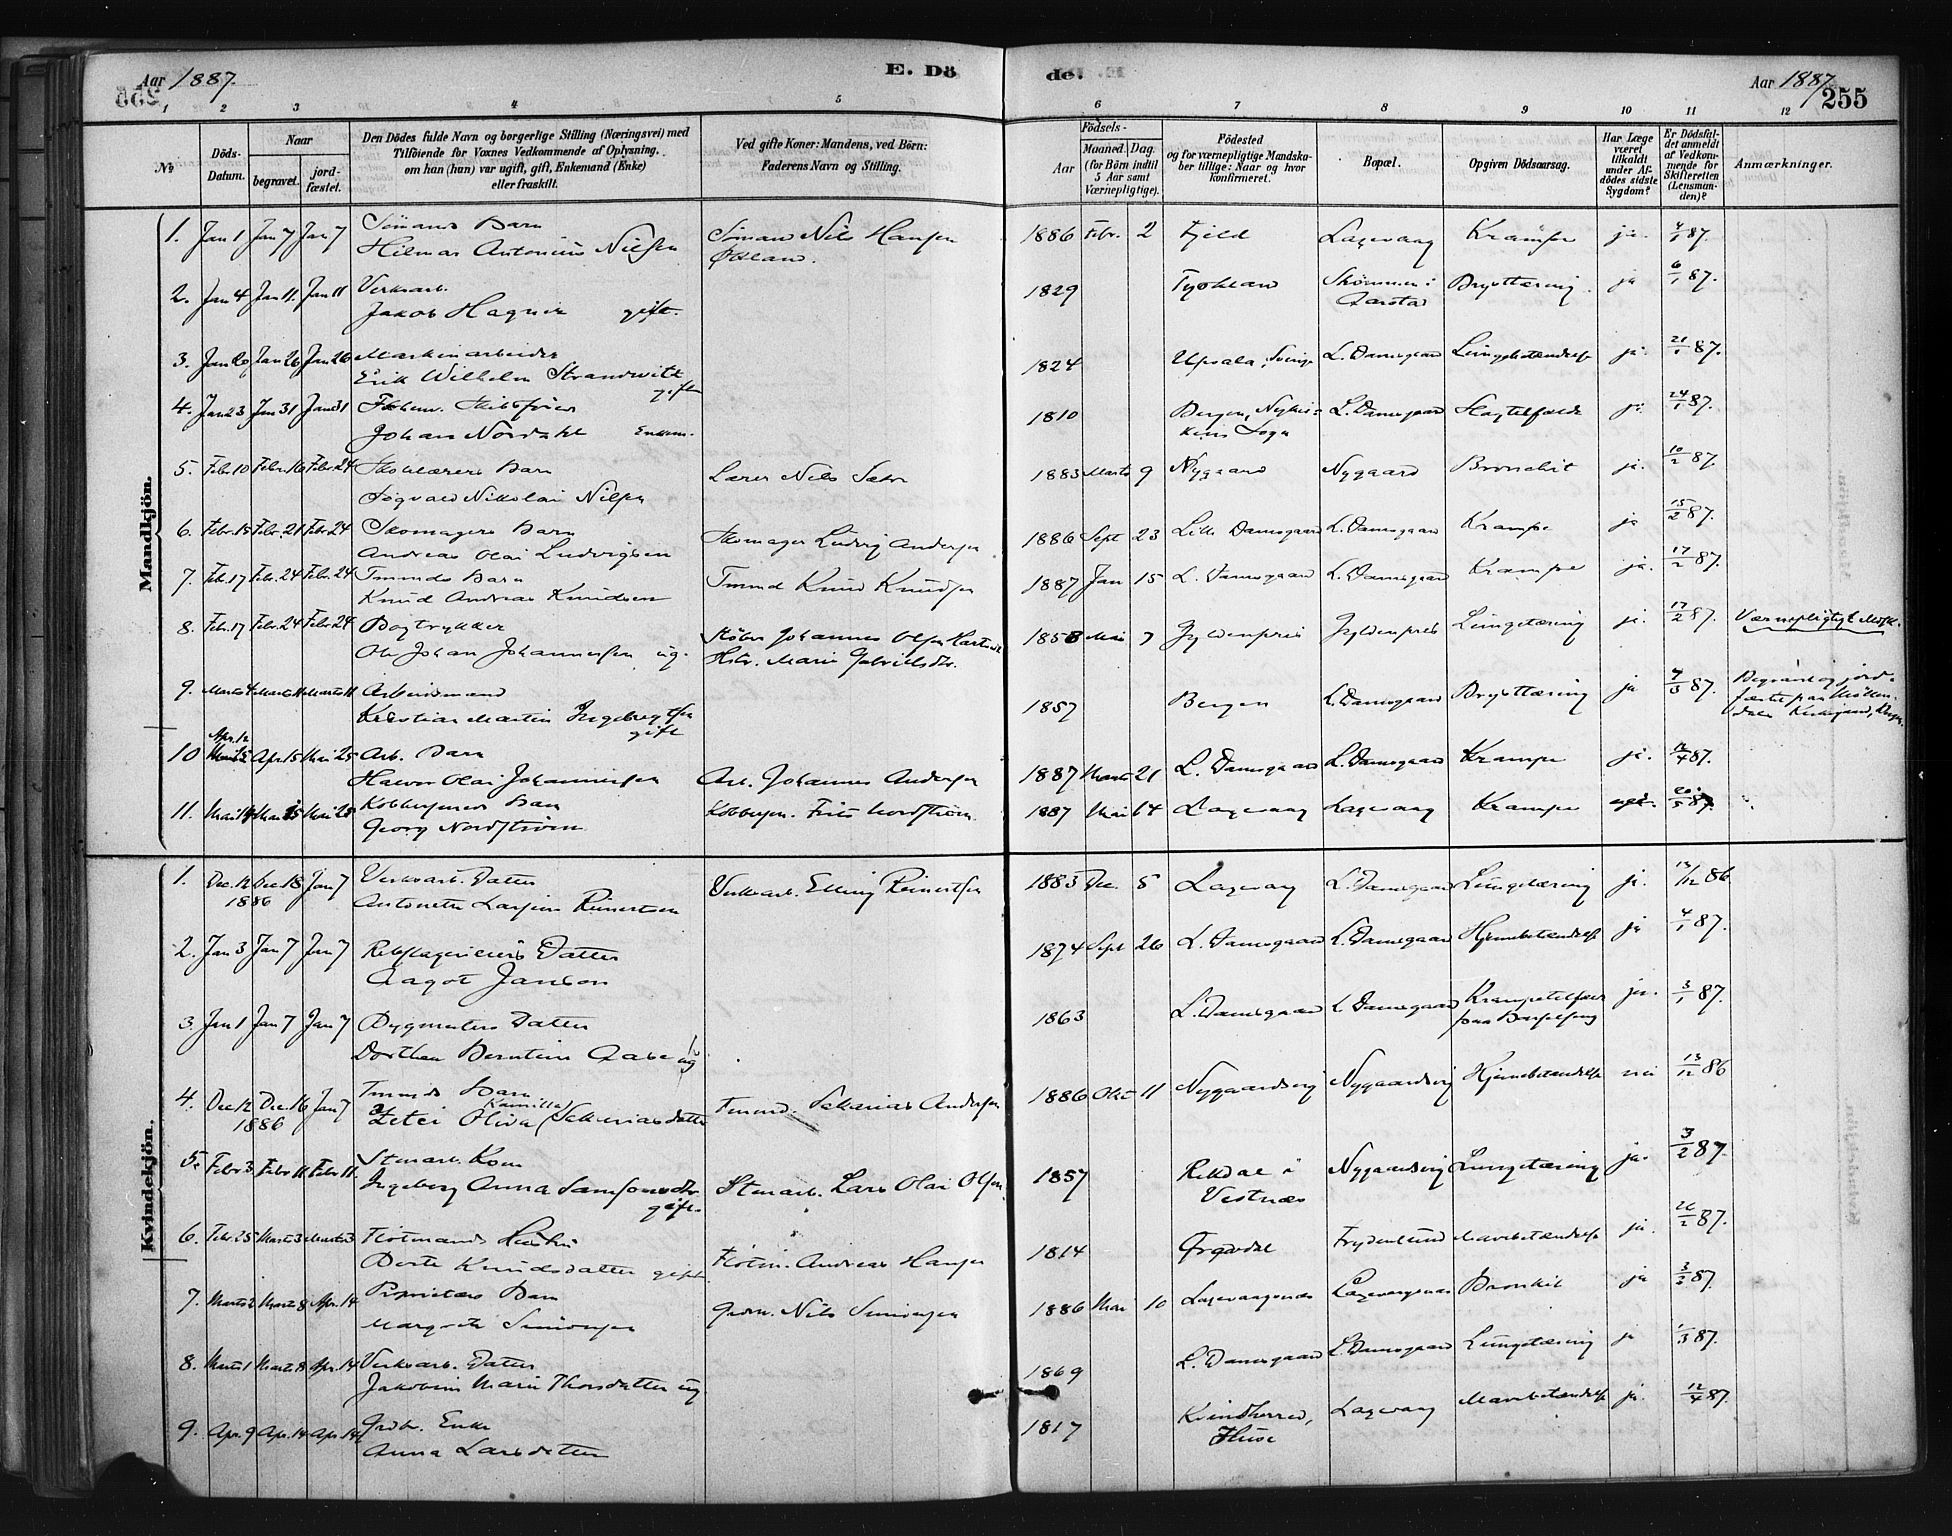 Aar 1887.
E. Døde.
Aar 1887.
255
1 2 3 4 5 6 7 8 9 10 11 12
№
Döds-Datum.
Naar
begravet.
jordfæstet.
Den Dödes fulde Navn og borgerlige Stilling (Næringsvei) med
Tilföiende for Voxnes Vedkommende af Oplysning,
om han (hun) var ugift, gift, Enkemand (Enke)
eller fraskilt.
Ved gifte Koner: Mandens, ved Börn:
Faderens Navn og Stilling.
Födsels-
Aar
Maaned. Dag.
(for Börn indtil
5 Aar samt
Værnepligtige).
Födested
og for værnepligtige Mandskaber tillige: Naar og hvor
konfirmeret.
Bopæl.
Opgiven Dödsaarsag.
Har Læge
været
tilkaldt
under Afdödes sidste
Sygdom?
Er Dödsfaldet anmeldt
af Vedkommende for
Skifteretten
(Lensmanden)?
Anmærkninger.
Mandkjön.
1. Jan 1 Jan 7 Jan 7 Sömands Barn Hilmar Antonius Nilsen Sömand Nils Hansen 1886 Febr. 2 Fjeld Laxevaag Krampe ja. 4/1 87.
2. Jan 4 Jan 11. Jan 11 Verksarb. Jakob gift. 1829 Brysttæring ja 6/1 87.
3. Jan 20 Jan 26 Jan 26 Maskinarbeider Erik Wilhelm Strandwitz gift 1824 Upsala, Sverige L. Damsgaard Lungebetændelse ja. 21/1 87.
4. Jan 23 Jan 31 Jan 31 Johan Nordahl Enkem. 1810 Bergen, L. Damsgaard ja. 24/1 87.
5. Febr. 10 Febr. 16 Febr. 24 Skolelærers Barn Nikolai Nilsen Lærer Nils 1883 Marts 9 Nygaard Nygaard Bronchit ja. 10/2 87.
6. Febr. 15 Febr. 21 Febr. 24 Skomagers Barn Andreas Olai Ludvigsen Skomager Ludvig Andersen 1886 Sept 23 Lille Damsgaard L. Damsgaard Krampe ja 15/2 87.
7. Feb. 17 Feb. 24 Feb. 24 Tmmds Barn Knud Andreas Knudsen Tmmd Knud Knudsen 1887 Jan 15 L. Damsgaard L. Damsgaard Krampe ja. 17/2 87.
8. Febr. 17 Febr. 24 Febr. 24 Bogtrykker Ole Johan Johannessen ug. Johannes Olsen Marie Gabrielsdr. 1858 Mai 7 Gyldenpris Gyldenpris Lungetæring ja. 17/2 87. Værnepligtigt
9. Marts 4 Marts 11 Marts 11 Arbeidsmand Kristian Martin Ingebrigtsen gift 1857 Bergen L. Damsgaard Brysttæring ja 7/3 87. Begravet og jordfæstet paa Møllendals Kirkegaard,
10 Apr. 12 Apr. 15 Mai 25 Arb. Barn Halvor Olai Johannessen Arb. Johannes Andersen 1887 Marts 21 L. Damsgaard L. Damsgaard Krampe ja. /4 87.
11. Mai 14 Mai 15 Mai 28 Barn Georg Nordstrøm Nordstrøm 1887 Mai 14 Laxevaag Laxevaag Krampe 20/5 87
Kvindekjön.
1. Dec. 12 1886 Dec. 18 Jan 7 Verksarb. Datter Antonette Reinertsen Verksarb. Elling Reinertsen 1883 Dec. 5 Laxevaag L. Damsgaard Lungetæring ja. 13/12 86
2. Jan 3 Jan 7 Jan 7 Datter Aagot Janson 1874 Sept 26 L. Damsgaard L. Damsgaard Hjernebetændelse ja 4/1 87.
3. Jan 1 Jan 7 Jan 7 Bygmesters Datter Dorthea Berntine ug 1863 L. Damsgaard L. Damsgaard Krampetilfælde paa Barselseng ja. 3/1 87.
4. Dec 12 1886 Dec. 16 Jan 7 Tmmds Barn Oliva (Kamilla) Sakariasdatter Tmmd. Sakarias Andersen 1886 Okt 11 Nygaardsvig Nygaardsvig Hjernebetændelse nei 13/12 86
5. Febr 3 Febr 11 Febr 11. Stenarb. Kone Ingeborg Anna Samsonsdtr. gift. Stenarb. Lars Olai Olsen. 1857 Rekdal i Vestnæs Nygaardsvig Lungetæring ja. 3/2 87.
6. Febr. 25 Marts 3 Marts 3 Flotmands Hustru Berte Knudsdatter gift Flotm. Andreas Hansen 1814 Frydenlund Mavebetændelse ja. /2 87.
7. Marts 2 Marts 8 Apr. 14 Proprietærs Barn Margrete Simonsen Nils Simonsen 1886 Mai 10 Laxevaagsnæs Laxevaagsnæs Bronkit ja 3/3 87.
8. Marts 1 Marts 8 Apr. 14 Verksarb. Datter Jakobine Marie Thorsdatter ug 1869 L. Damsgaard L. Damsgaard Lungetæring ja 1/3 87.
9. Apr. 9 Apr. 14 Apr. 14 Grdbr. Enke Anna Larsdatter 1817 Kvindherred, Huse Laxevaag Mavebetændelse ja. 12/4 87.